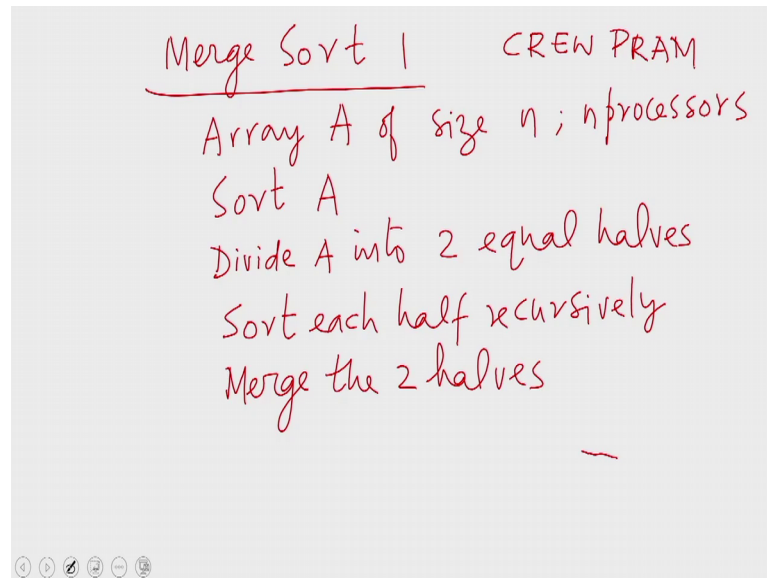 Merge Sort 1 CREW PRAM
Array A of size n ; n processors
Sort A
Divide A into 2 equal halves
Sort each half recursively
Merge the 2 halves